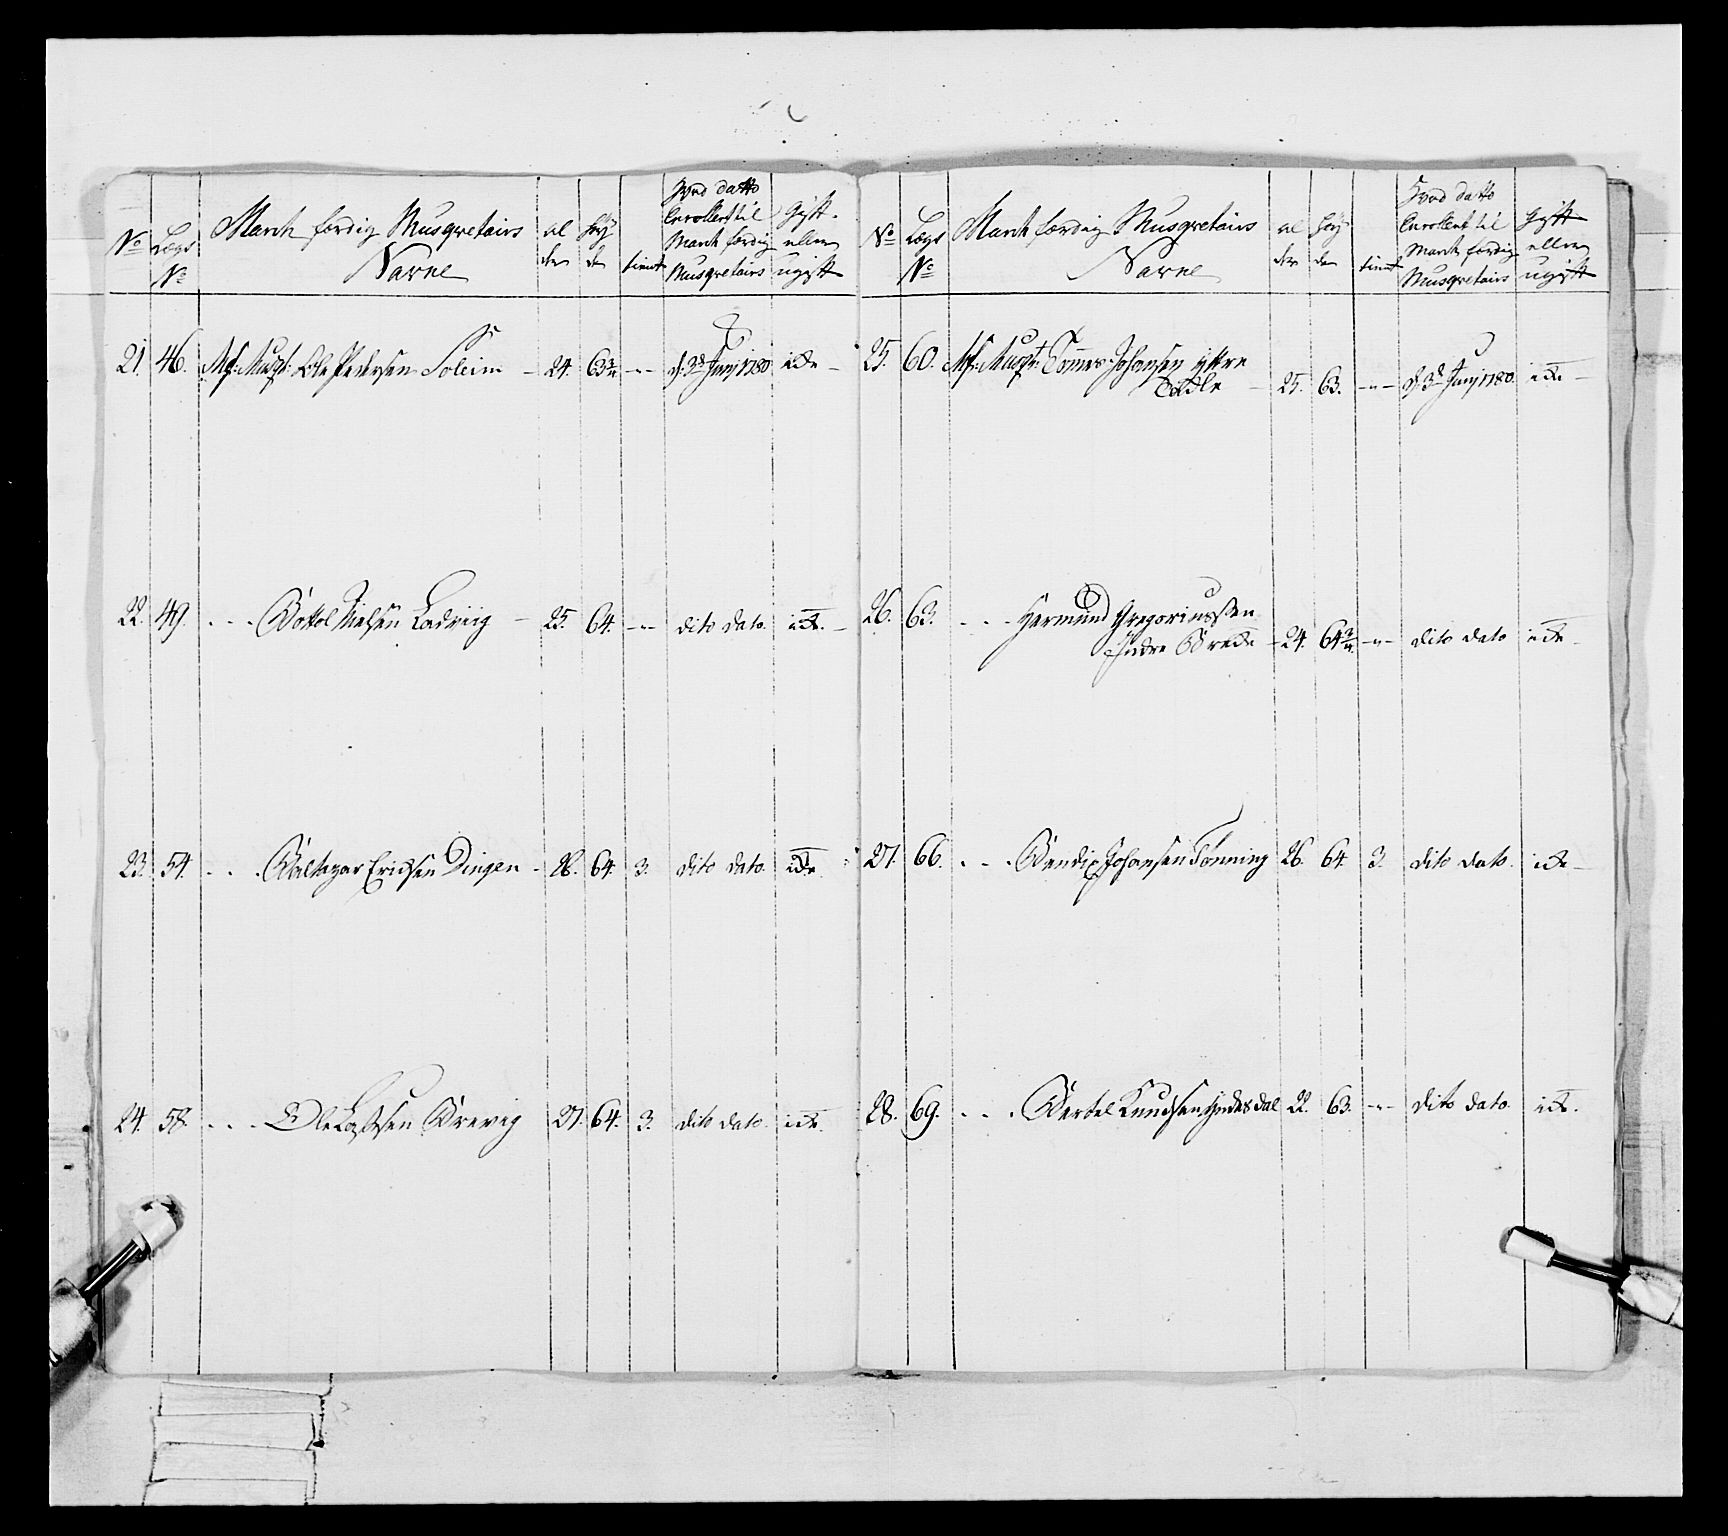 No Lægs No March færdig Musqvetairs Navne alder høyde tient Hvad datto Enrollert til March færdig Musqvetairs Gift eller ugift
21. 46. Mf: Musqt: Ole Pedersen Soleim - 24. 63 3/4 -"- d. 3d Junj 1780 ide -
22. 49. - - - Bottol Nielsen Ladviig - 25. 64. -"- dito dato. ide. -
23. 54. - - - Baltazar Erichsen Dingen - 28. 64. 3. dito dato. ide.
24. 58. - - - Ole Lassen Brevig 27. 64. 3. dito dato. ide.
No Lægs No March færdig Musqvetairs Navne alder høyde tient Hvad datto Enrollert til March færdig Musqvetairs Gift eller ugift
25. 60. Mf: Musqt: Tomes Johansen yttre
Oddle - 25. 63. -"- d. 3d Junj 1780. ide -
26. 63. - - - Harmund Gregoriussen
Indre Brede - 24. 64 3/4. -"- dito dato ide -
27. 66. - - - Bendix Johansen Tønning 26. 64 3. dito dato. ide -
28. 69. - - - Bertel Knudsen Hødesdal 22. 63. -"- dito dato. ide.